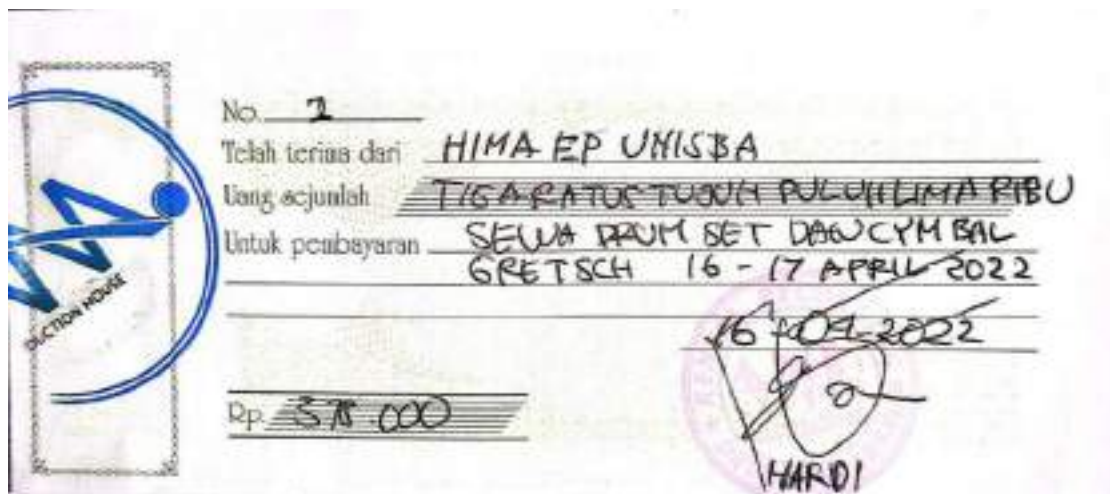 No. 2
Telah terima dari HIMA EP UNISBA
Uang sejumlah TIGA RATUS TUJUH PULUH LIMA RIBU
Untuk pembayaran SEWA DRUM SET DAN CYMBAL
GRETSCH 16 - 17 APRIL 2022
16 - 04 - 2022
Rp. 375.000
HARDI
HOUSE